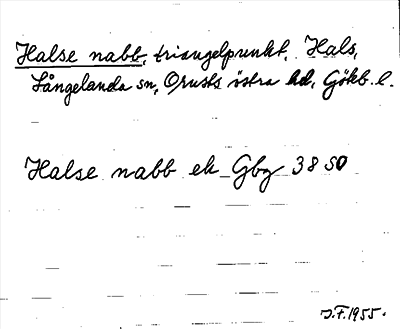 Halse nabb, triangelpunkt, Hals,
Långelanda sn, Orusts östra hd, Gökb. l.
Halse nabb ek Gbg 38 SO
J.F. 1955.